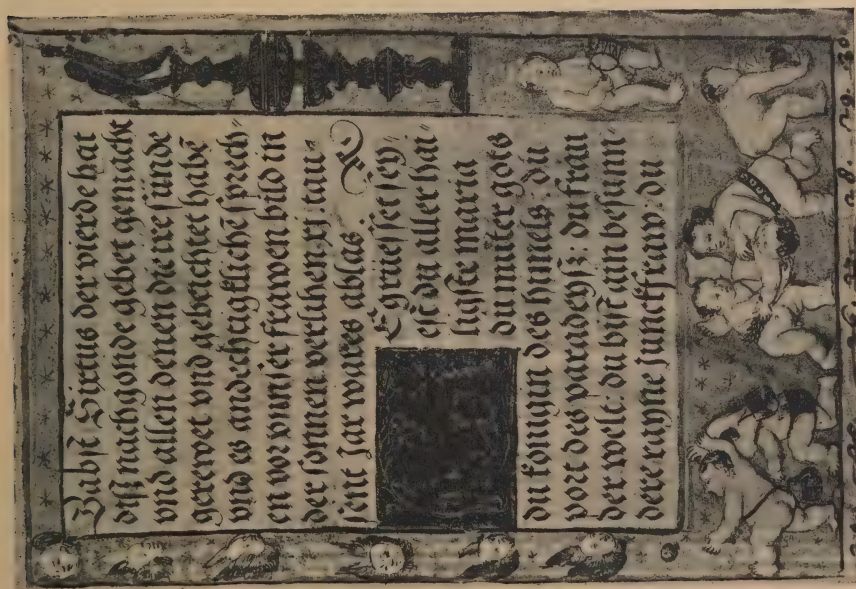 Babst Sixtus der vierde hat
disz nachgonde gebet gemacht
vnd allen denen die ire sünde
gerewet vnd gebeichtet habē
vnd es andechtigkliche sprech-
en vor vnnser frawen bild in
der sonnen verlihen xj tau-
sent Jar wares ablas.
Egruesset sey-
est du aller hai-
ligste maria
du muter gots
du königin des himels: du
port des paradeysz: du frau
der welt: du bist ain besunn-
dere rayne junckfraw: du
28. 29. 30